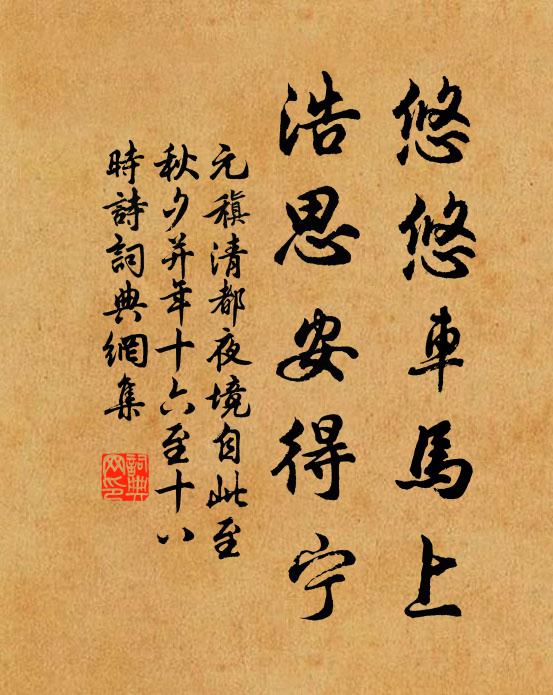 悠悠車馬上
浩思安得宁
元稹清都夜境自此至
秋夕并年十六至十八
時詩詞典網集
詞典網印